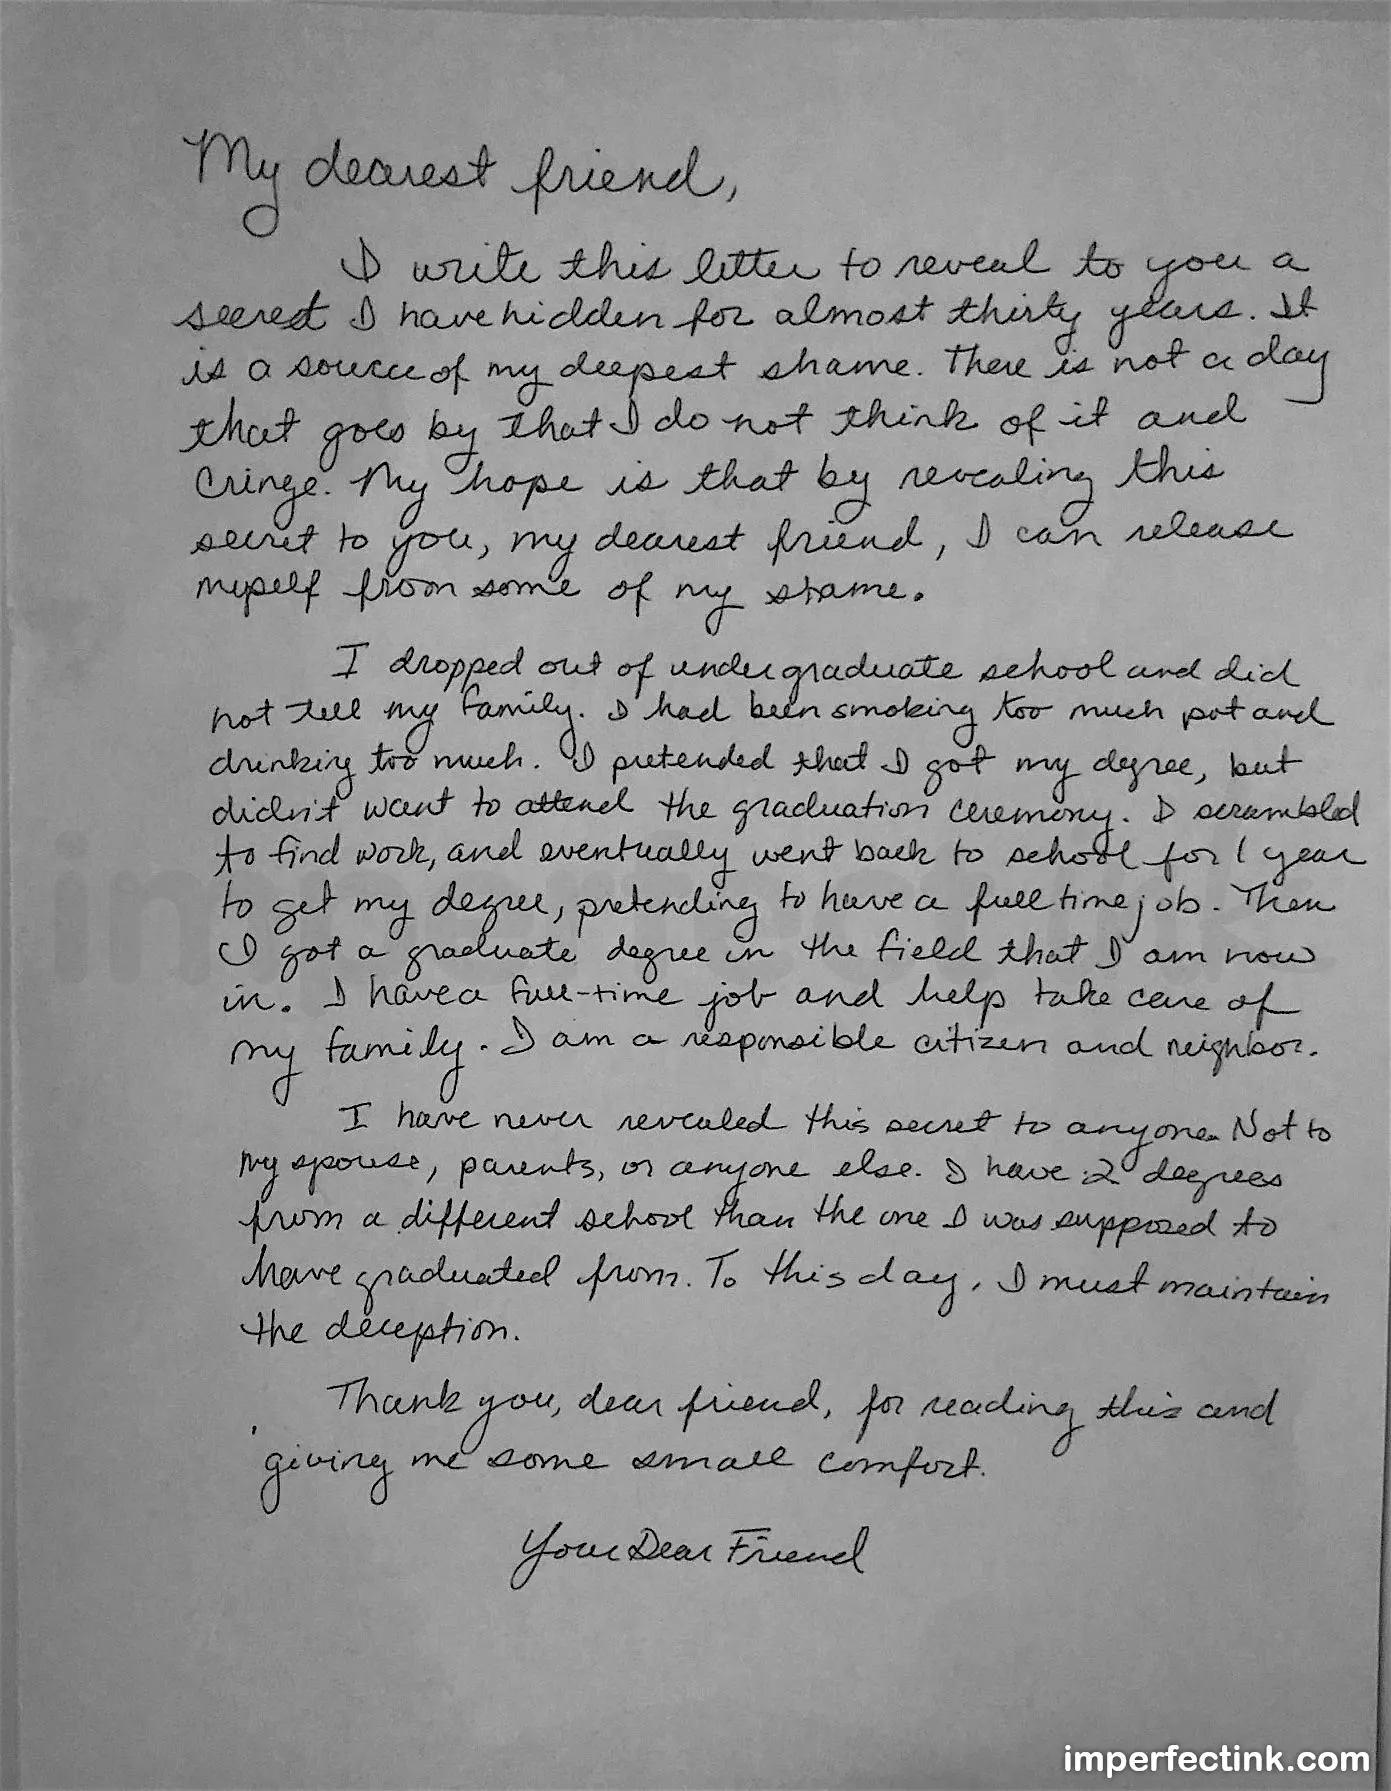 My dearest friend,
I write this letter to reveal to you a
secret I have hidden for almost thirty years. It
is a source of my deepest shame. There is not a day
that goes by that I do not think of it and
cringe. My hope is that by revealing this
secret to you, my dearest friend, I can release
myself from some of my shame.
I dropped out of undergraduate school and did
not tell my family. I had been smoking too much pot and
drinking too much. I pretended that I got my degree, but
didn't want to attend the graduation ceremony. I scrambled
to find work, and eventually went back to school for 1 year
to get my degree, pretending to have a full time job. Then
I got a graduate degree in the field that I am now
in. I have a full-time job and help take care of
my family. I am a responsible citizen and neighbor.
I have never revealed this secret to anyone. Not to
my spouse, parents, or anyone else. I have 2 degrees
from a different school than the one I was supposed to
have graduated from. To this day, I must maintain
the deception.
Thank you, dear friend, for reading this and
giving me some small comfort.
Your Dear Friend
imperfectink.com